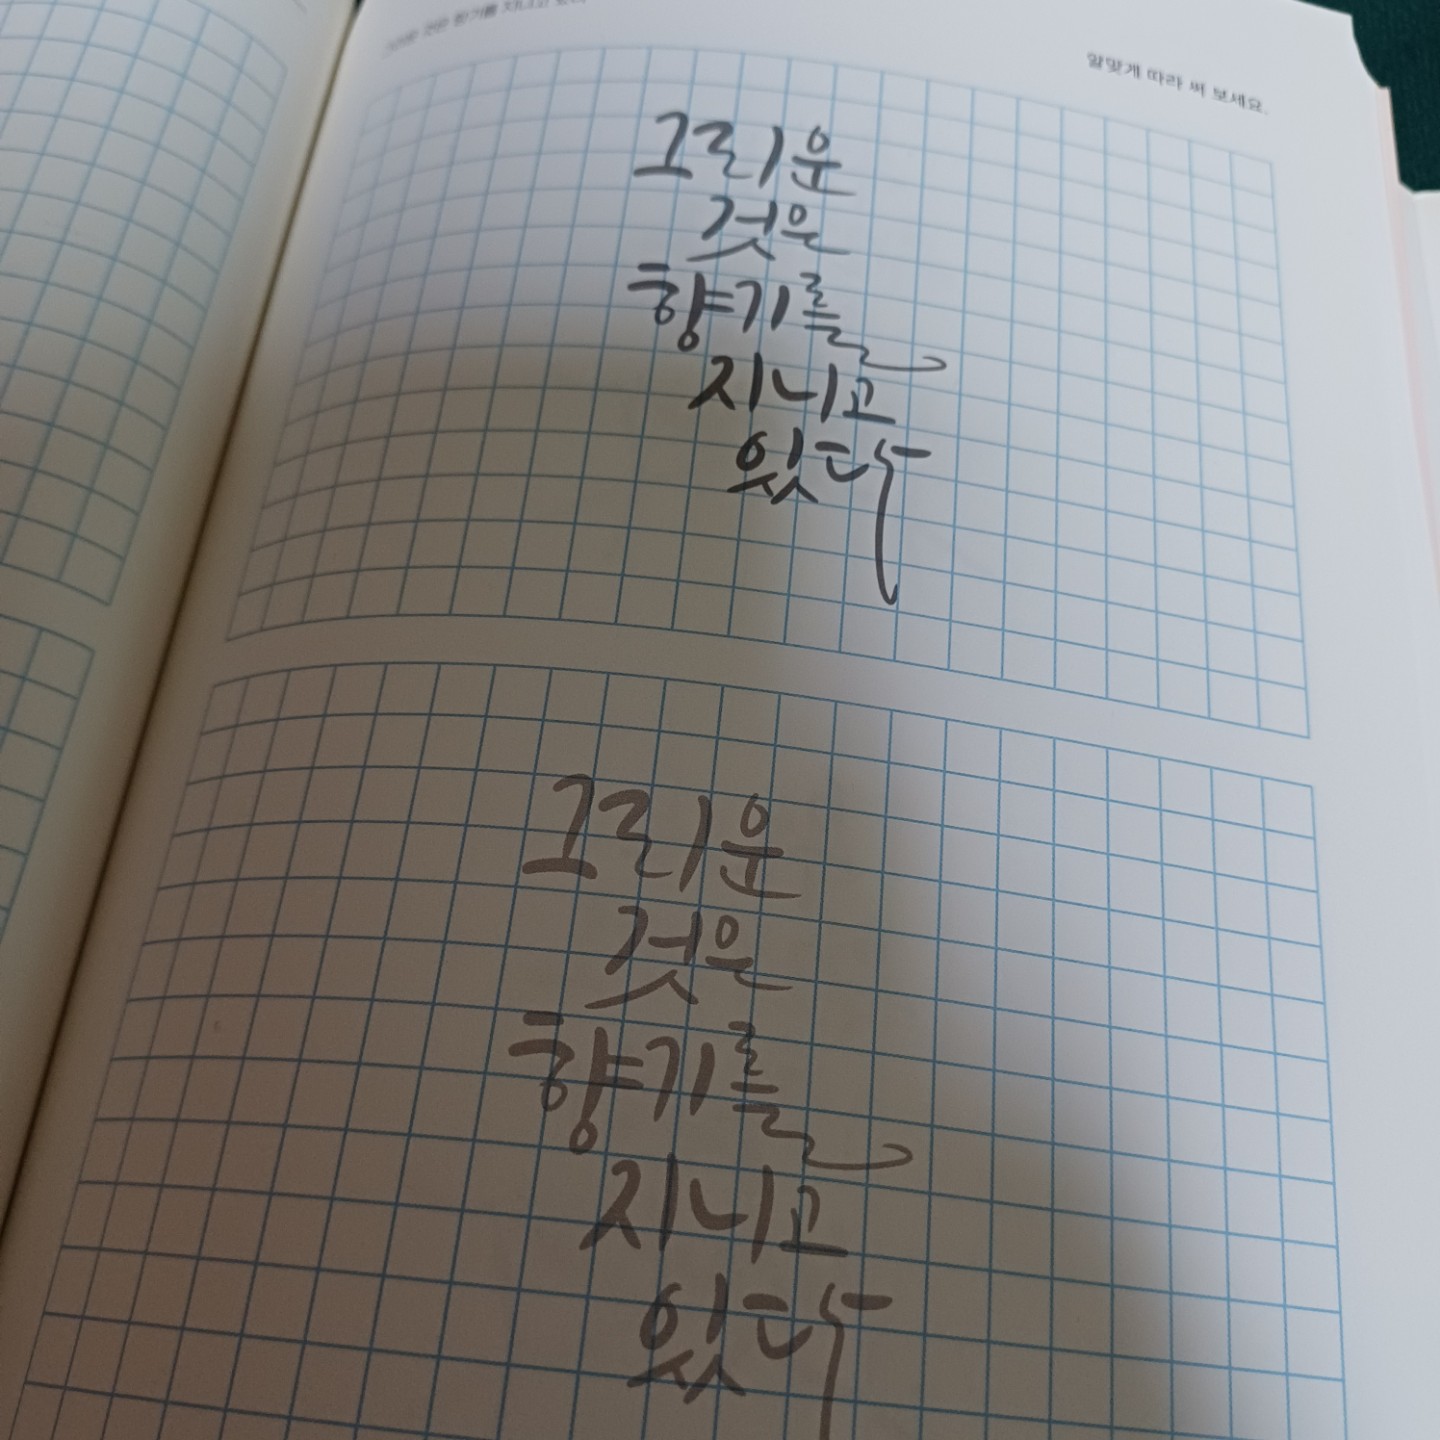 그리운 것은 향기를 지니고 있다
알맞게 따라 써 보세요.
그리운
것은
향기를
지니고
있다
그리운
것은
향기를
지니고
있다